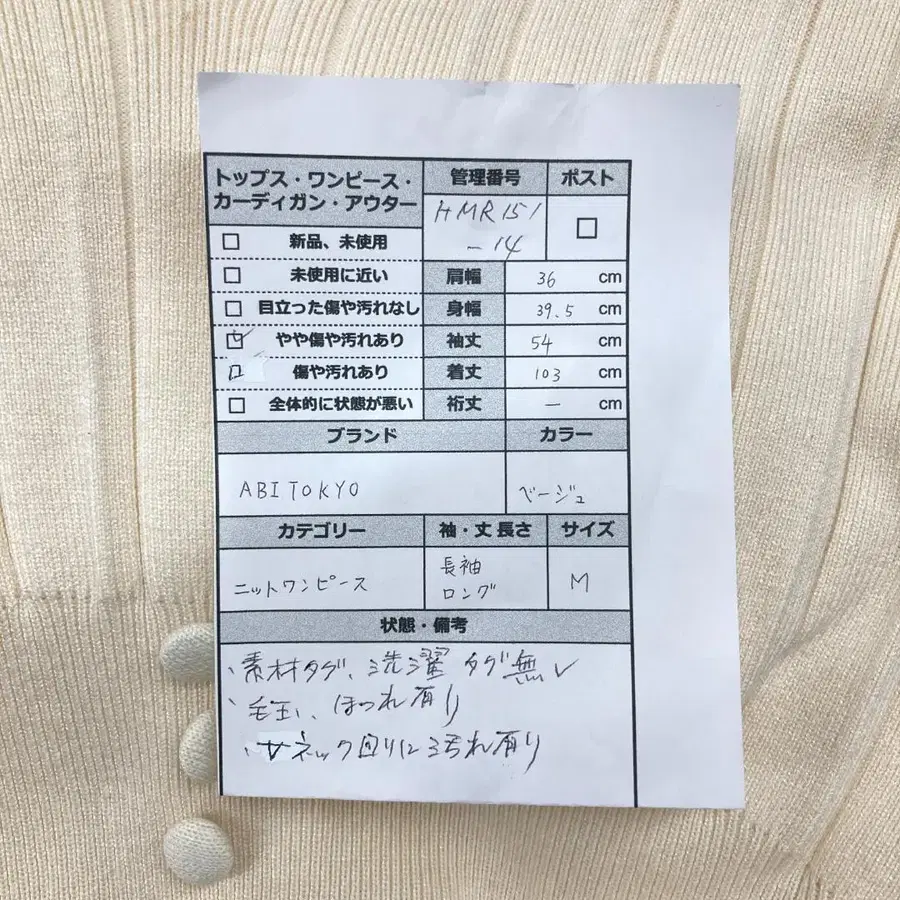 トップス・ワンピース・
カーディガン・アウター
管理番号
ポスト
HMR151
-14
□
□ 新品、未使用
□ 未使用に近い
肩幅 36 cm
□ 目立った傷や汚れなし
身幅 39.5 cm
☑ やや傷や汚れあり
袖丈 54 cm
□ 傷や汚れあり
着丈 103 cm
□ 全体的に状態が悪い
裄丈 ― cm
ブランド
カラー
ABITOKYO
ベージュ
カテゴリー
袖・丈 長さ
サイズ
ニットワンピース
長袖
ロング
M
状態・備考
、素材タグ、洗濯タグ無し
、毛玉、ほつれ有り
、Vネック回りに汚れ有り